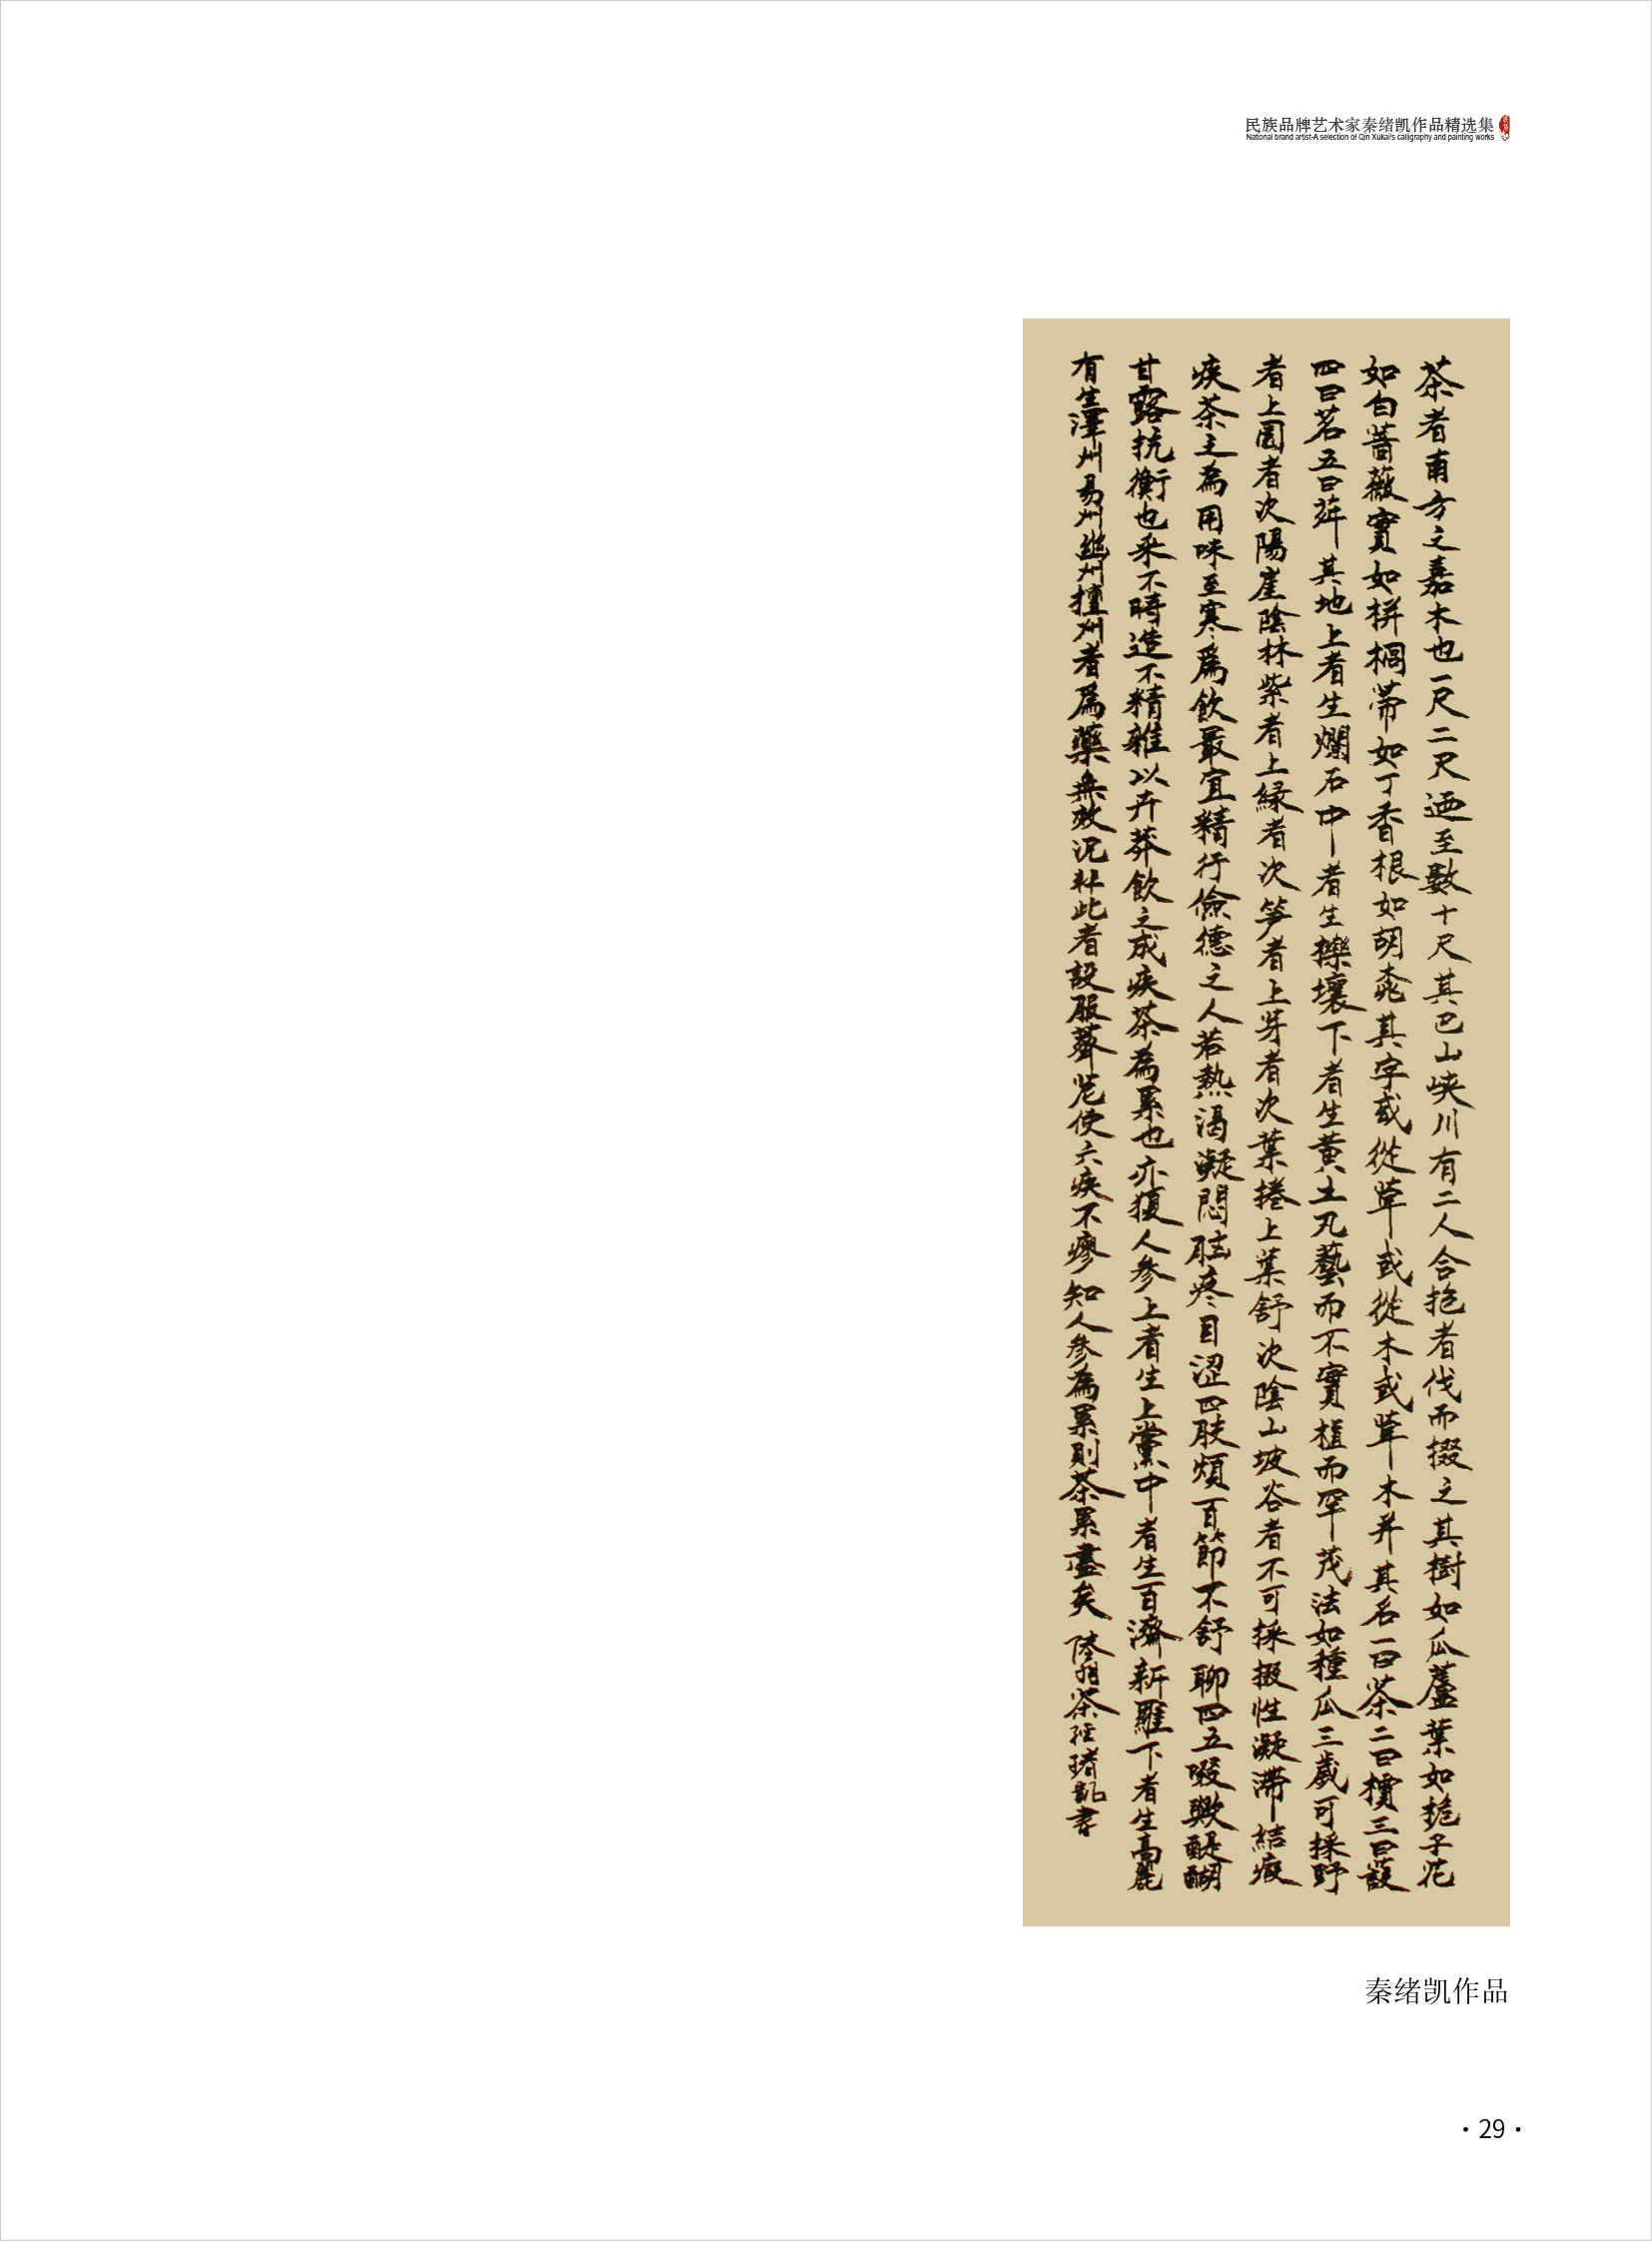 民族品牌艺术家秦绪凯作品精选集
National brand artist-A selection of Qin Xukai's calligraphy and painting works
茶者南方之嘉木也一尺二尺迺至數十尺其巴山峽川有二人合抱者伐而掇之其樹如瓜蘆葉如梔子花
如白薔薇實如栟櫚蒂如丁香根如胡桃其字或從草或從木或草木并其名一曰茶二曰檟三曰蔎
四曰茗五曰荈其地上者生爛石中者生擽壤下者生黃土凡藝而不實植而罕茂法如種瓜三歲可採野
者上園者次陽崖陰林紫者上緑者次笋者上芽者次葉捲上葉舒次陰山坡谷者不可採掇性凝滯結瘕
疾茶之為用味至寒為飲最宜精行儉德之人若熱渴凝悶腦疼目澀四肢煩百節不舒聊四五啜與醍醐
甘露抗衡也采不時造不精雜以卉莽飲之成疾茶為累也亦猶人參上者生上黨中者生百濟新羅下者生高麗
有生澤州易州幽州檀州者為藥無效況非此者設服薺苨使六疾不瘳知人參為累則茶累盡矣 陸羽茶經 緒凱書
秦绪凯作品
·29·